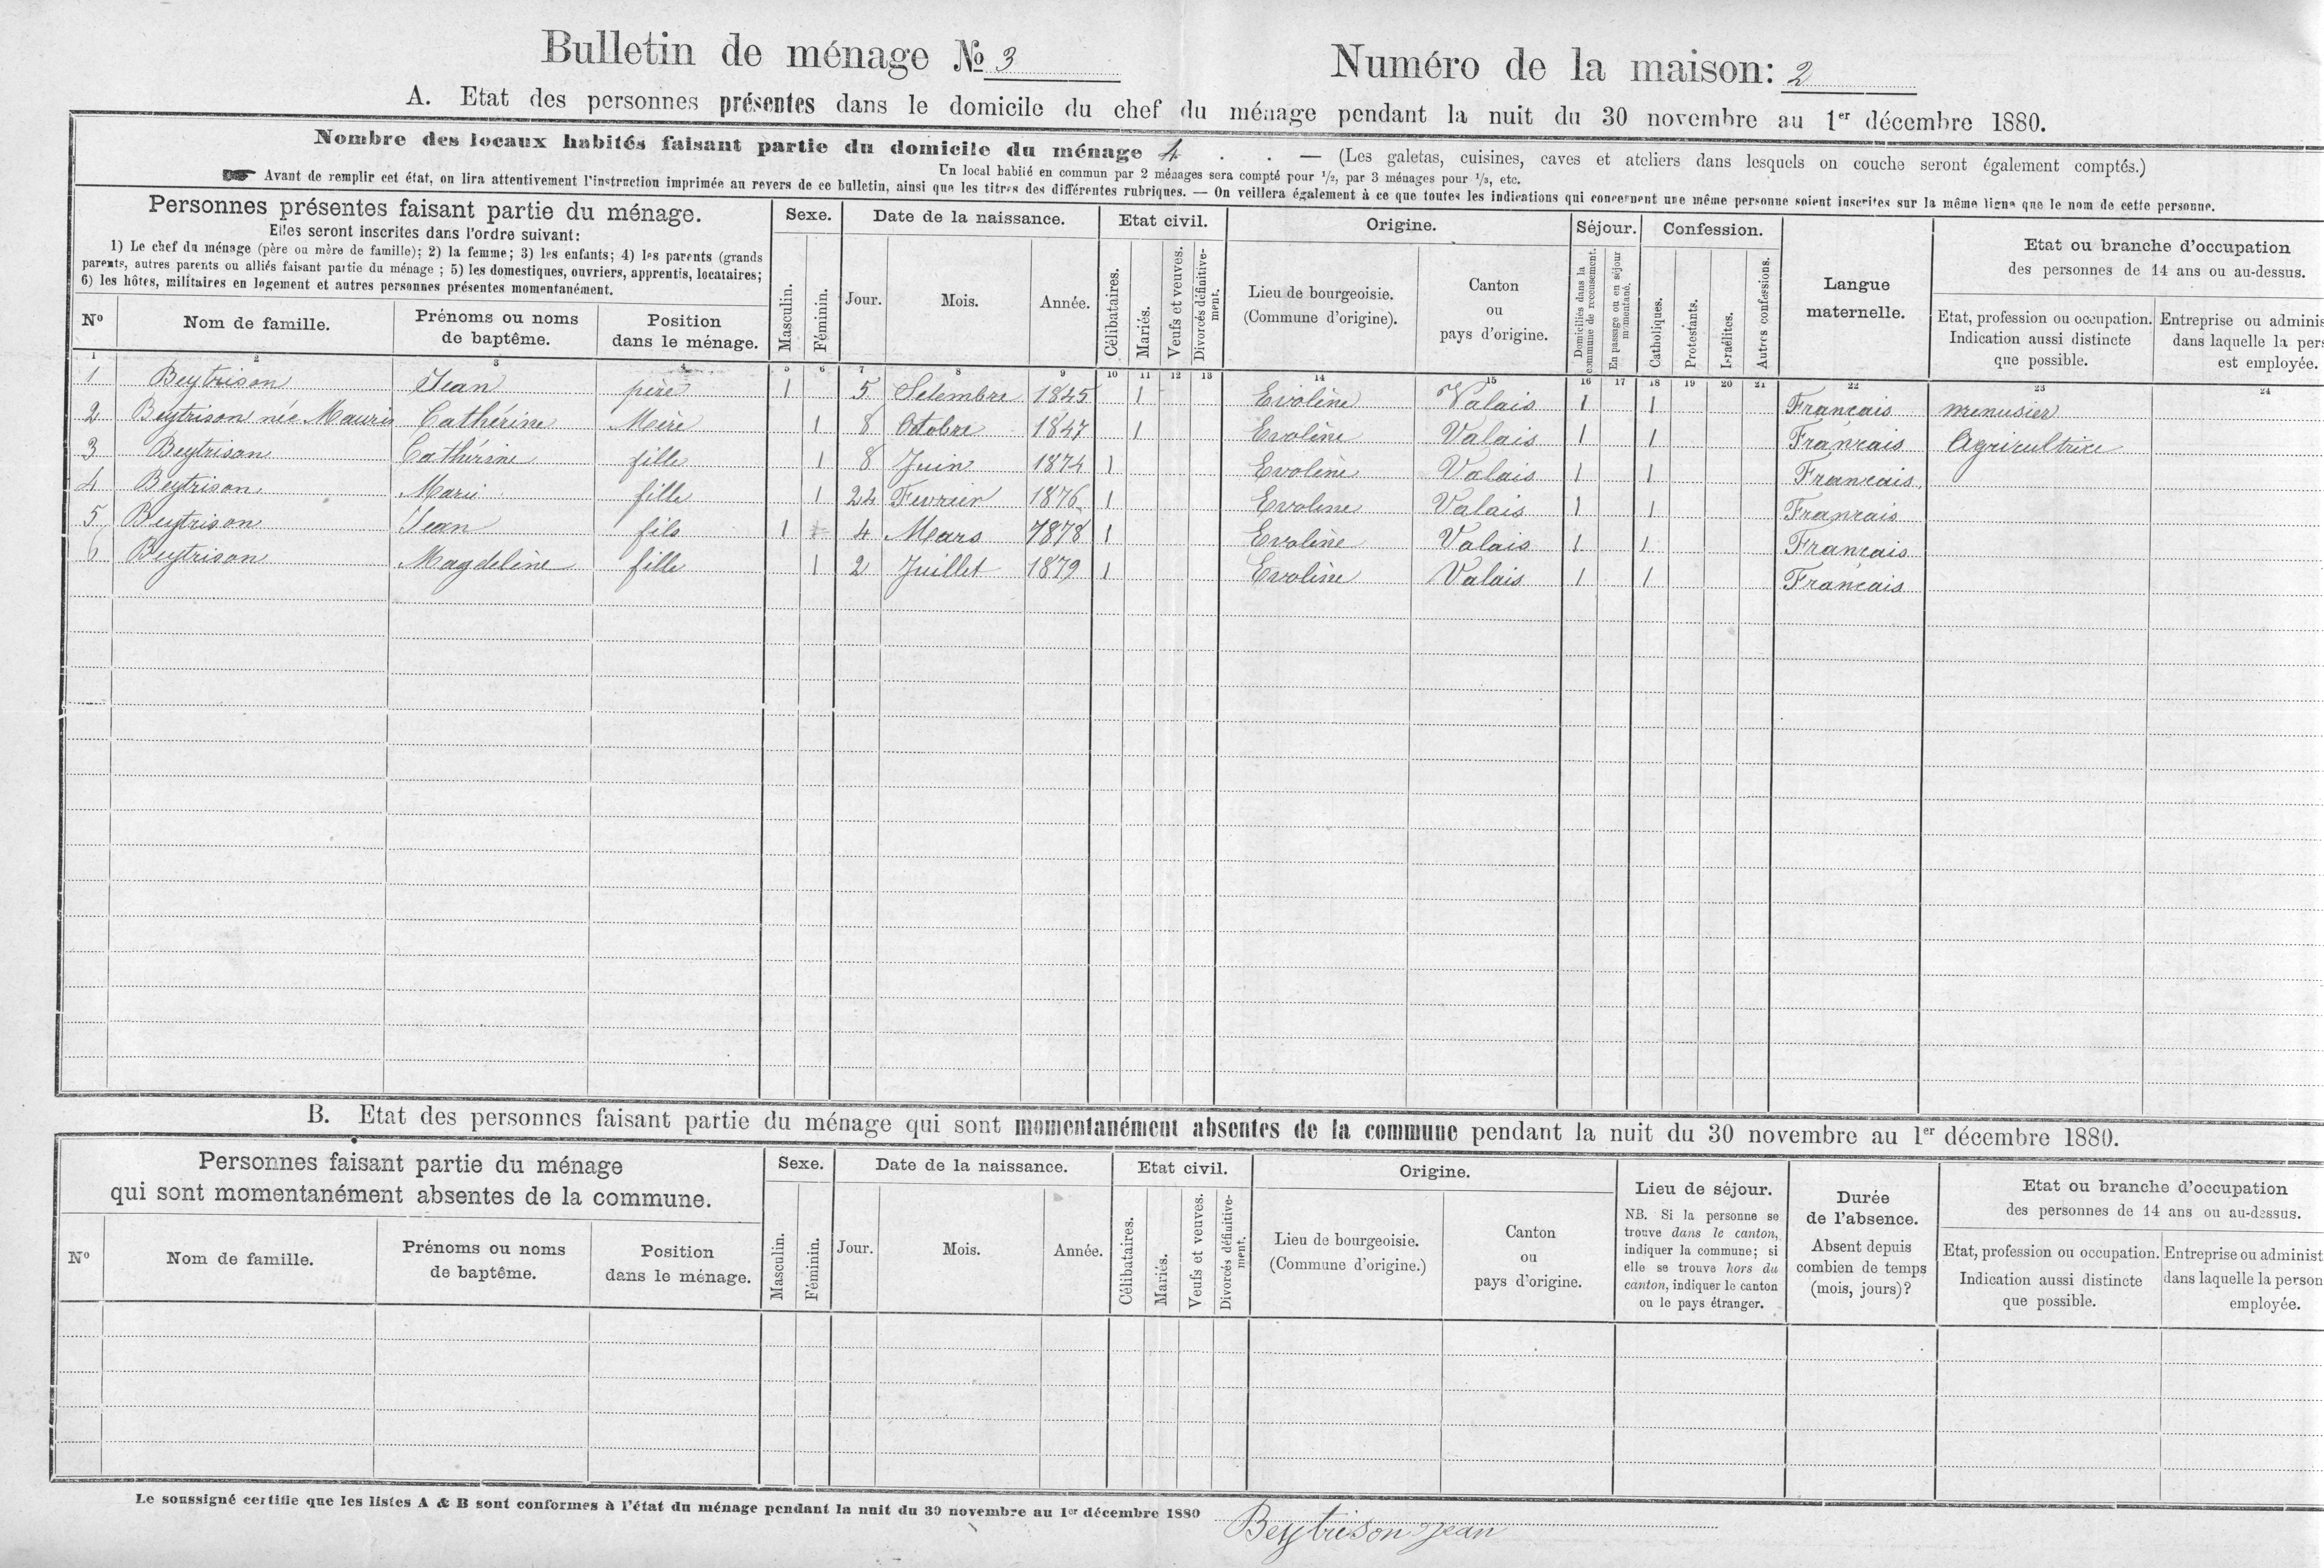 Bulletin de ménage No 3 Numéro de la maison: 2
A. Etat des personnes présentes dans le domicile du chef du ménage pendant la nuit du 30 novembre au 1er décembre 1880.
Nombre des locaux habités faisant partie du domicile du ménage 4 . . — (Les galetas, cuisines, caves et ateliers dans lesquels on couche seront également comptés.)
Un local habité en commun par 2 ménages sera compté pour 1/2, par 3 ménages pour 1/3, etc.
Avant de remplir cet état, on lira attentivement l'instruction imprimée au revers de ce bulletin, ainsi que les titres des différentes rubriques. — On veillera également à ce que toutes les indications qui concernent une même personne soient inscrites sur la même ligne que le nom de cette personne.
Personnes présentes faisant partie du ménage.
Elles seront inscrites dans l'ordre suivant:
1) Le chef du ménage (père ou mère de famille); 2) la femme; 3) les enfants; 4) les parents (grands
parents, autres parents ou alliés faisant partie du ménage ; 5) les domestiques, ouvriers, apprentis, locataires;
6) les hôtes, militaires en logement et autres personnes présentes momentanément.
No
Nom de famille.
Prénoms ou noms
de baptême.
Position
dans le ménage.
Sexe.
Masculin.
Féminin.
Date de la naissance.
Jour.
Mois.
Année.
Etat civil.
Célibataires.
Mariés.
Veufs et veuves.
Divorcés définitive-
ment.
Origine.
Lieu de bourgeoisie.
(Commune d'origine).
Canton
ou
pays d'origine.
Séjour.
Domiciliés dans la
commune de recensement.
En passage ou en séjour
momentané.
Confession.
Catholiques.
Protestants.
Israélites.
Autres confessions.
Langue
maternelle.
Etat ou branche d'occupation
des personnes de 14 ans ou au-dessus.
Etat, profession ou occupation.
Indication aussi distincte
que possible.
Entreprise ou adminis
dans laquelle la pers
est employée.
1 2 3 4 5 6 7 8 9 10 11 12 13 14 15 16 17 18 19 20 21 22 23 24
1 Beytrison Jean père 1 5 Setembre 1845 1 Evolène Valais 1 1 Francais menusier
2 Beytrison née Mauris Cathérine Mère 1 8 Octobre 1847 1 Evolène Valais 1 1 Francais Agricultrice
3 Beytrison Cathérine fille 1 8 Juin 1874 1 Evolène Valais 1 1 Francais
4 Beytrison Marie fille 1 24 Fevrier 1876 1 Evolène Valais 1 1 Francais
5 Beytrison Jean fils 1 4 Mars 1878 1 Evolène Valais 1 1 Francais
6 Beytrison Magdelène fille 1 2 Juillet 1879 1 Evolène Valais 1 1 Francais
B. Etat des personnes faisant partie du ménage qui sont momentanément absentes de la commune pendant la nuit du 30 novembre au 1er décembre 1880.
Personnes faisant partie du ménage
qui sont momentanément absentes de la commune.
No
Nom de famille.
Prénoms ou noms
de baptême.
Position
dans le ménage.
Sexe.
Masculin.
Féminin.
Date de la naissance.
Jour.
Mois.
Année.
Etat civil.
Célibataires.
Mariés.
Veufs et veuves.
Divorcés définitive-
ment.
Origine.
Lieu de bourgeoisie.
(Commune d'origine.)
Canton
ou
pays d'origine.
Lieu de séjour.
NB. Si la personne se
trouve dans le canton,
indiquer la commune; si
elle se trouve hors du
canton, indiquer le canton
ou le pays étranger.
Durée
de l'absence.
Absent depuis
combien de temps
(mois, jours)?
Etat ou branche d'occupation
des personnes de 14 ans ou au-dessus.
Etat, profession ou occupation.
Indication aussi distincte
que possible.
Entreprise ou administ
dans laquelle la person
employée.
Le soussigné certifie que les listes A & B sont conformes à l'état du ménage pendant la nuit du 30 novembre au 1er décembre 1880 Beytrison Jean